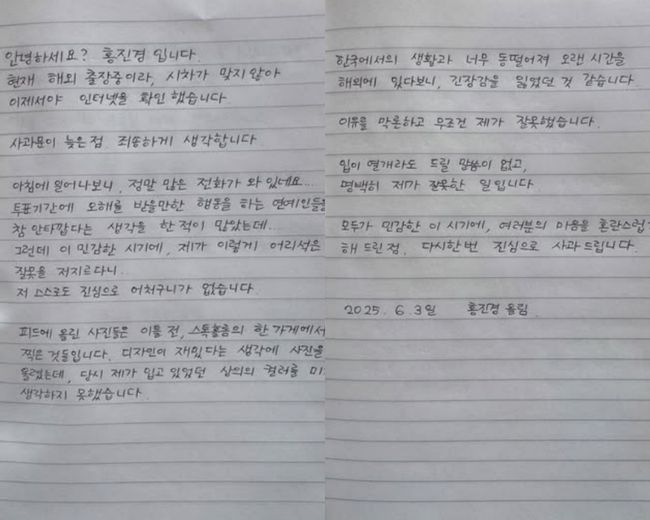 안녕하세요? 홍진경 입니다.
현재 해외 출장중이라, 시차가 맞지않아
이제서야 인터넷을 확인 했습니다
사과문이 늦은점. 죄송하게 생각합니다
아침에 일어나보니, 정말 많은 전화가 와 있네요....
투표기간에 오해를 받을만한 행동을 하는 연예인들을
참 안타깝다는 생각을 한 적이 많았는데...
그런데 이 민감한 시기에, 제가 이렇게 어리석은
잘못을 저지르다니...
저 스스로도 진심으로 어처구니가 없습니다.
피드에 올린 사진들은 이틀 전, 스톡홀름의 한 가게에서
찍은 것들입니다. 디자인이 재밌다는 생각에 사진을
올렸는데, 당시 제가 입고 있었던 상의의 컬러를 미
생각하지 못했습니다.
한국에서의 생활과 너무 동떨어져 오랜 시간을
해외에 있다보니, 긴장감을 잃었던 것 같습니다.
이유를 막론하고 무조건 제가 잘못했습니다.
입이 열개라도 드릴 말씀이 없고,
명백히 제가 잘못한 일입니다
모두가 민감한 이 시기에, 여러분의 마음을 혼란스럽
해 드린 점, 다시한번 진심으로 사과드립니다.
2025. 6. 3일 홍진경 올림.